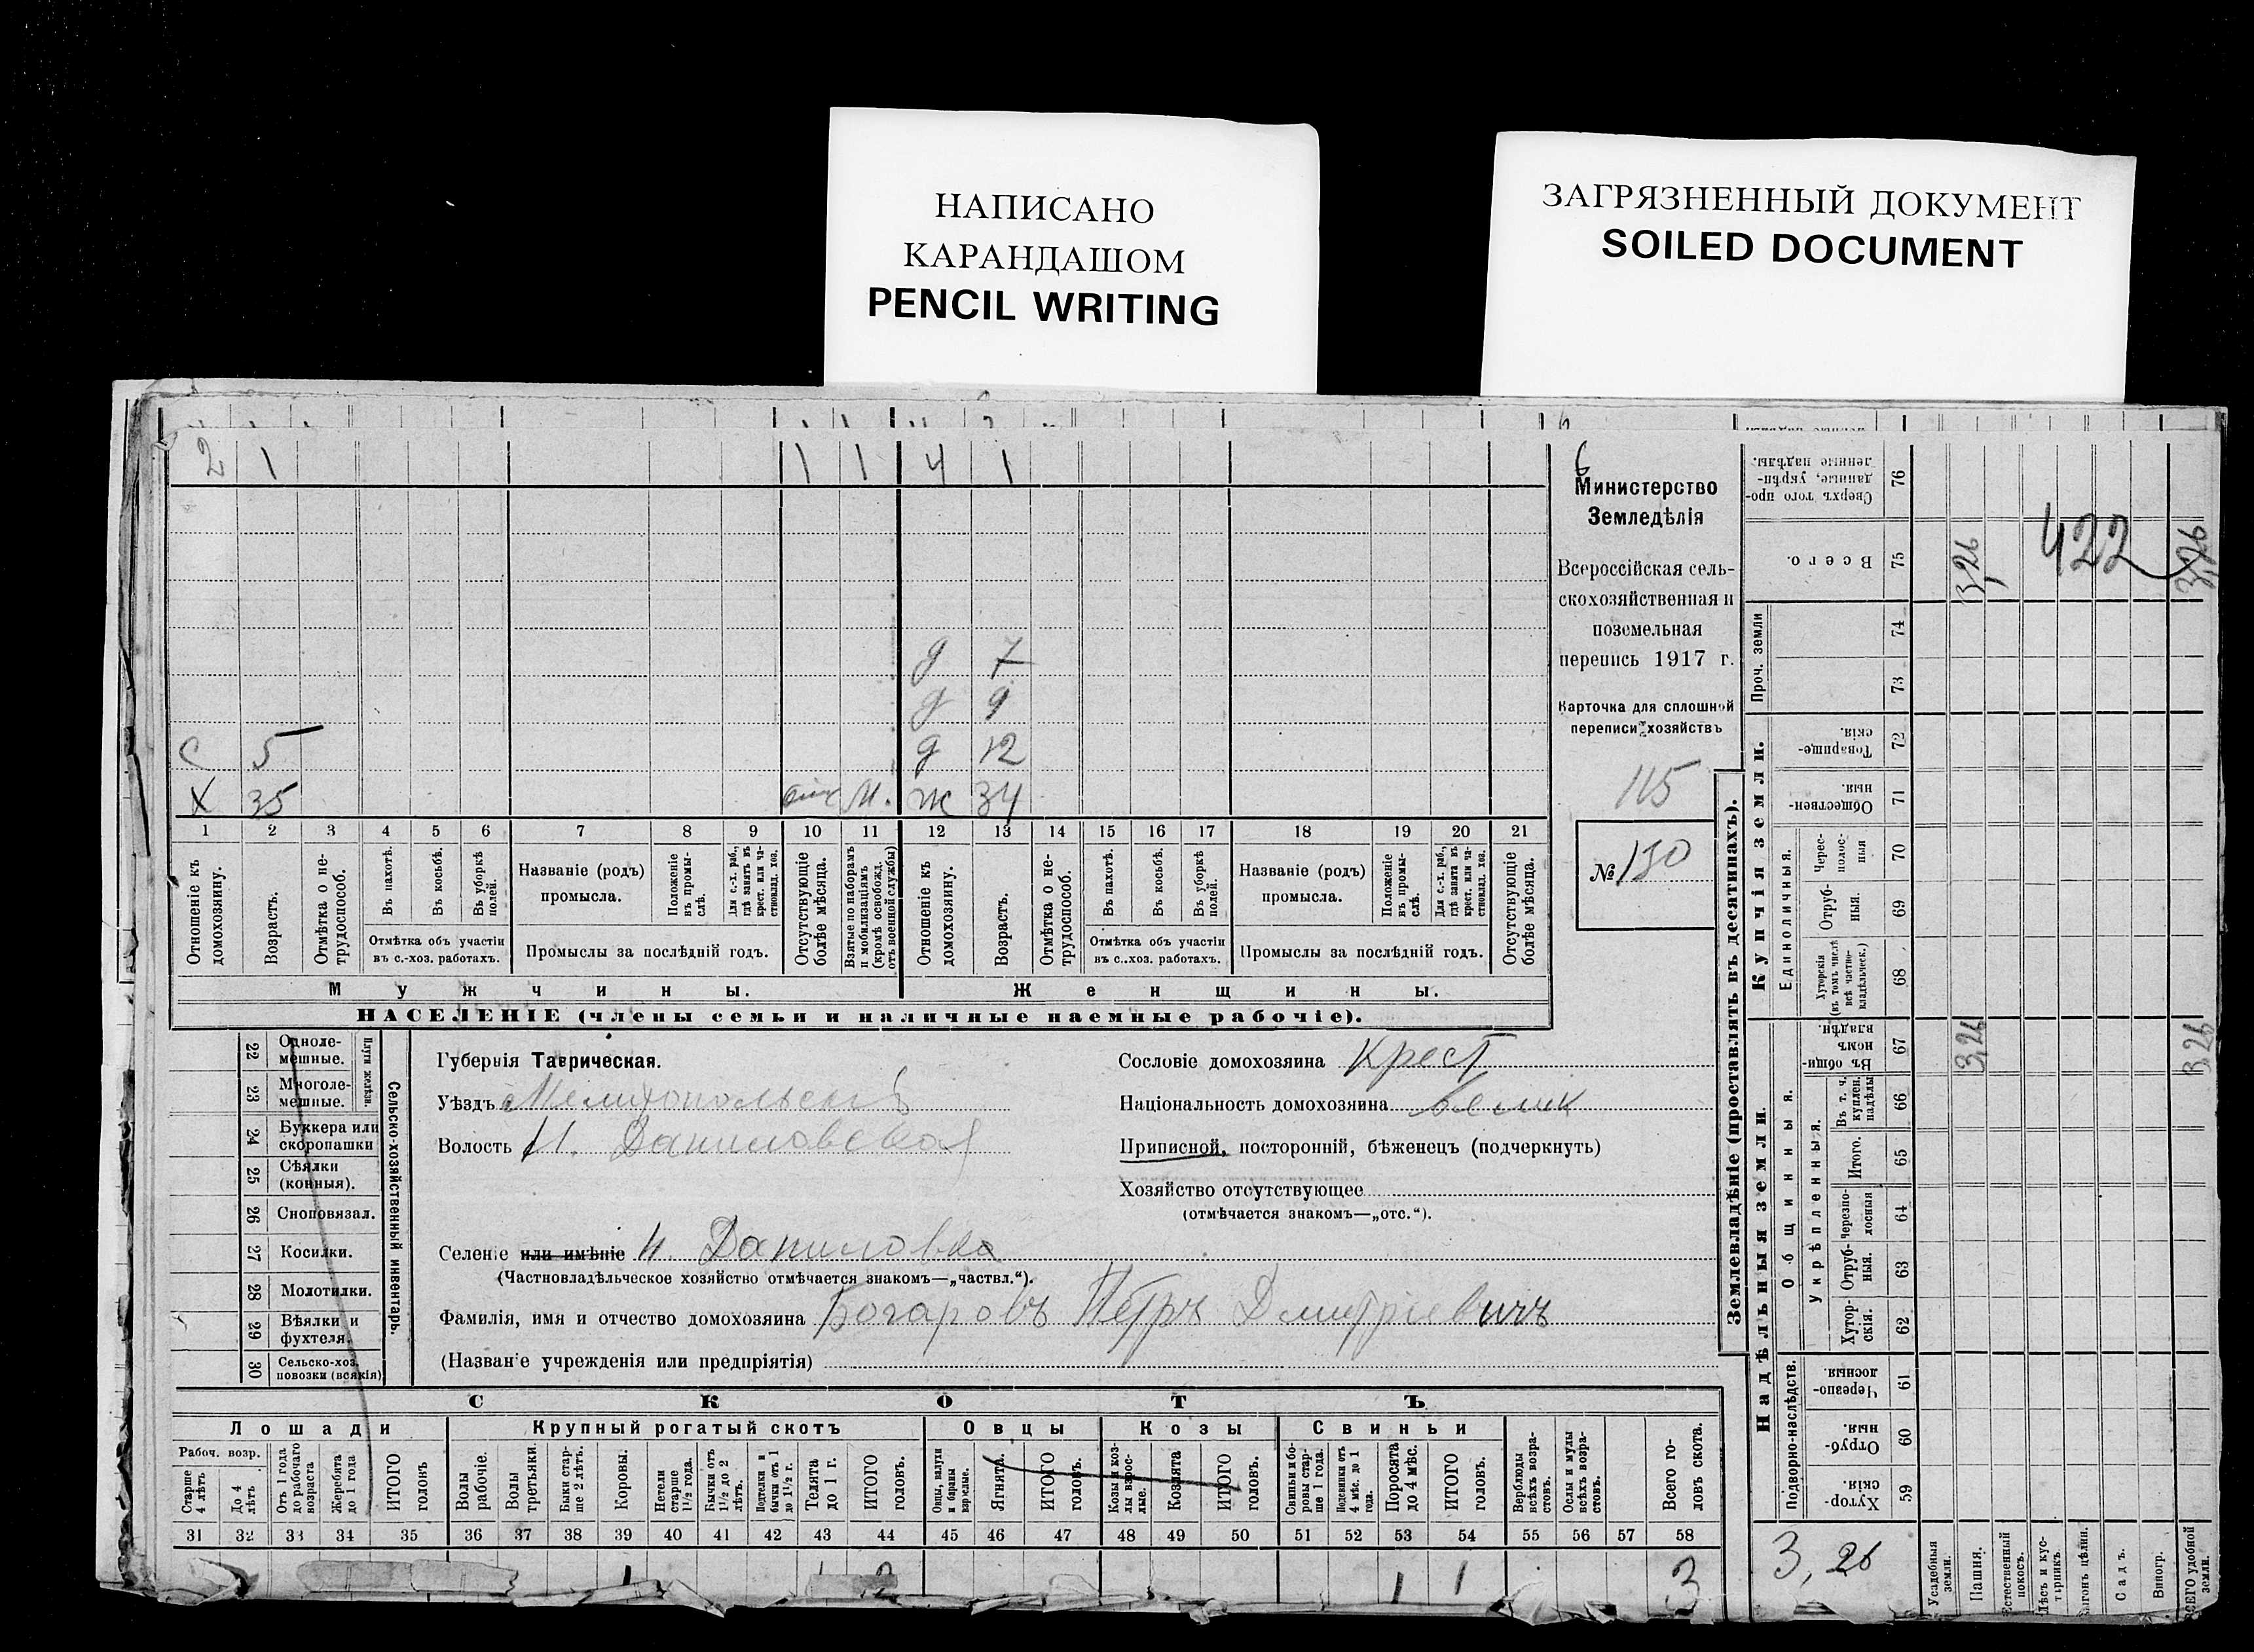 НАПИСАНО
КАРАНДАШОМ
PENCIL WRITING
ЗАГРЯЗНЕННЫЙ ДОКУМЕНТ
SOILED DOCUMENT
2 1 1 1 4 1
д 7
д 9
с 5 д 12
Х 35 М. ж 34
1 2 3 4 5 6 7 8 9 10 11 12 13 14 15 16 17 18 19 20 21
Отношеніе къ домохозяину.
Возрастъ.
Отмѣтка о не-трудоспособ.
Въ пахотѣ.
Въ косьбѣ.
Въ уборкѣ полей.
Отмѣтка объ участіи
въ с.-хоз. работахъ.
Названіе (родъ)
промысла.
Положеніе въ промы-слѣ.
Для с.-х. раб., гдѣ занятъ въ крест. или ча-стновлад. хоз.
Промыслы за послѣдній годъ.
Отсутствующіе болѣе мѣсяца.
Взятые по наборамъ и мобилизаціямъ (кромѣ освобожд. отъ военной службы)
Отношеніе къ домохозяину.
Возрастъ.
Отмѣтка о не-трудоспособ.
Въ пахотѣ.
Въ косьбѣ.
Въ уборкѣ полей.
Отмѣтка объ участіи
въ с.-хоз. работахъ.
Названіе (родъ)
промысла.
Положеніе въ промы-слѣ.
Для с.-х. раб., гдѣ занята въ крест. или ча-стновлад. хоз.
Промыслы за послѣдній годъ.
Отсутствующіе болѣе мѣсяца.
Мужчины. Женщины.
НАСЕЛЕНІЕ (члены семьи и наличные наемные рабочіе).
Министерство
Земледѣлія
Всероссійская сель-
скохозяйственная и
поземельная
перепись 1917 г.
Карточка для сплошной
переписи хозяйствъ
115
№ 130
22 Одноле-мешные.
23 Многоле-мешные.
Плуги желѣзн.
24 Буккера или скоропашки
25 Сѣялки (конныя).
26 Сноповязал.
27 Косилки.
28 Молотилки.
29 Вѣялки и фухтеля.
30 Сельско-хоз. повозки (всякія)
Сельско-хозяйственный инвентарь.
Губернія Таврическая.
Уѣздъ Мелитопольскій
Волость Н. Даниловская
Селеніе или имѣніе Н. Даниловка
(Частновладѣльческое хозяйство отмѣчается знакомъ—„частвл.“).
Фамилія, имя и отчество домохозяина Богаровъ Петръ Дмитріевичъ
(Названіе учрежденія или предпріятія)
Сословіе домохозяина Крест
Національность домохозяина велик
Приписной, посторонній, бѣженецъ (подчеркнуть)
Хозяйство отсутствующее
(отмѣчается знакомъ—„отс.“).
СКОТЪ
Лошади Крупный рогатый скотъ Овцы Козы Свиньи
Рабоч. возр.
Старше 4 лѣтъ
До 4 лѣтъ
Отъ 1 года до рабочаго возраста
Жеребята до 1 года
ИТОГО головъ
Волы рабочіе.
Волы третьяки.
Быки стар-ше 2 лѣтъ.
Коровы.
Нетели старше 1½ года.
Бычки отъ 1½ до 2 лѣтъ.
Подтелки и бычки отъ 1 до 1½ г.
Телята до 1 г.
ИТОГО головъ.
Овцы, валухи и бараны взрослые.
Ягнята.
ИТОГО головъ.
Козы и коз-лы взрос-лые.
Козлята
ИТОГО головъ.
Свиньи и бо-ровы стар-ше 1 года.
Подсвинки отъ 4 мѣс. до 1 года.
Поросята до 4 мѣс.
ИТОГО головъ.
Верблюды всѣхъ возра-стовъ.
Ослы и мулы всѣхъ возра-стовъ.
Всего го-ловъ скота.
31 32 33 34 35 36 37 38 39 40 41 42 43 44 45 46 47 48 49 50 51 52 53 54 55 56 57 58
1 1 2 1 1 3
Землевладѣніе (проставлять въ десятинахъ).
Надѣльныя земли. Купчія земли.
Подворно-наслѣдств.
Общинныя.
Укрѣпленныя.
Единоличныя.
Проч. земли
Хутор-скія. 59
Отруб-ныя. 60
Черезпо-лосныя 61
Хутор-скія. 62
Отруб-ныя. 63
Черезпо-лосныя 64
Итого. 65
Въ т. ч. куплен. надѣлы 66
Въ общин-номъ владѣн. 67
Хуторскія (въ томъ числѣ всѣ частно-владѣльческ.) 68
Отруб-ныя. 69
Черес-полос-ныя 70
Обществен-ныя. 71
Товарище-скія. 72
73
74
Всего. 75
Сверхъ того про-данные, укрѣп-ленные надѣлы. 76
3,26 422 3,26
3,26 3,26
3,26
Усадебныя земли.
Пашня.
Естественный покосъ.
Лѣсъ и кус-тарникъ.
Выгонъ цѣлин.
Садъ.
Виногр.
ВСЕГО удобной земли.